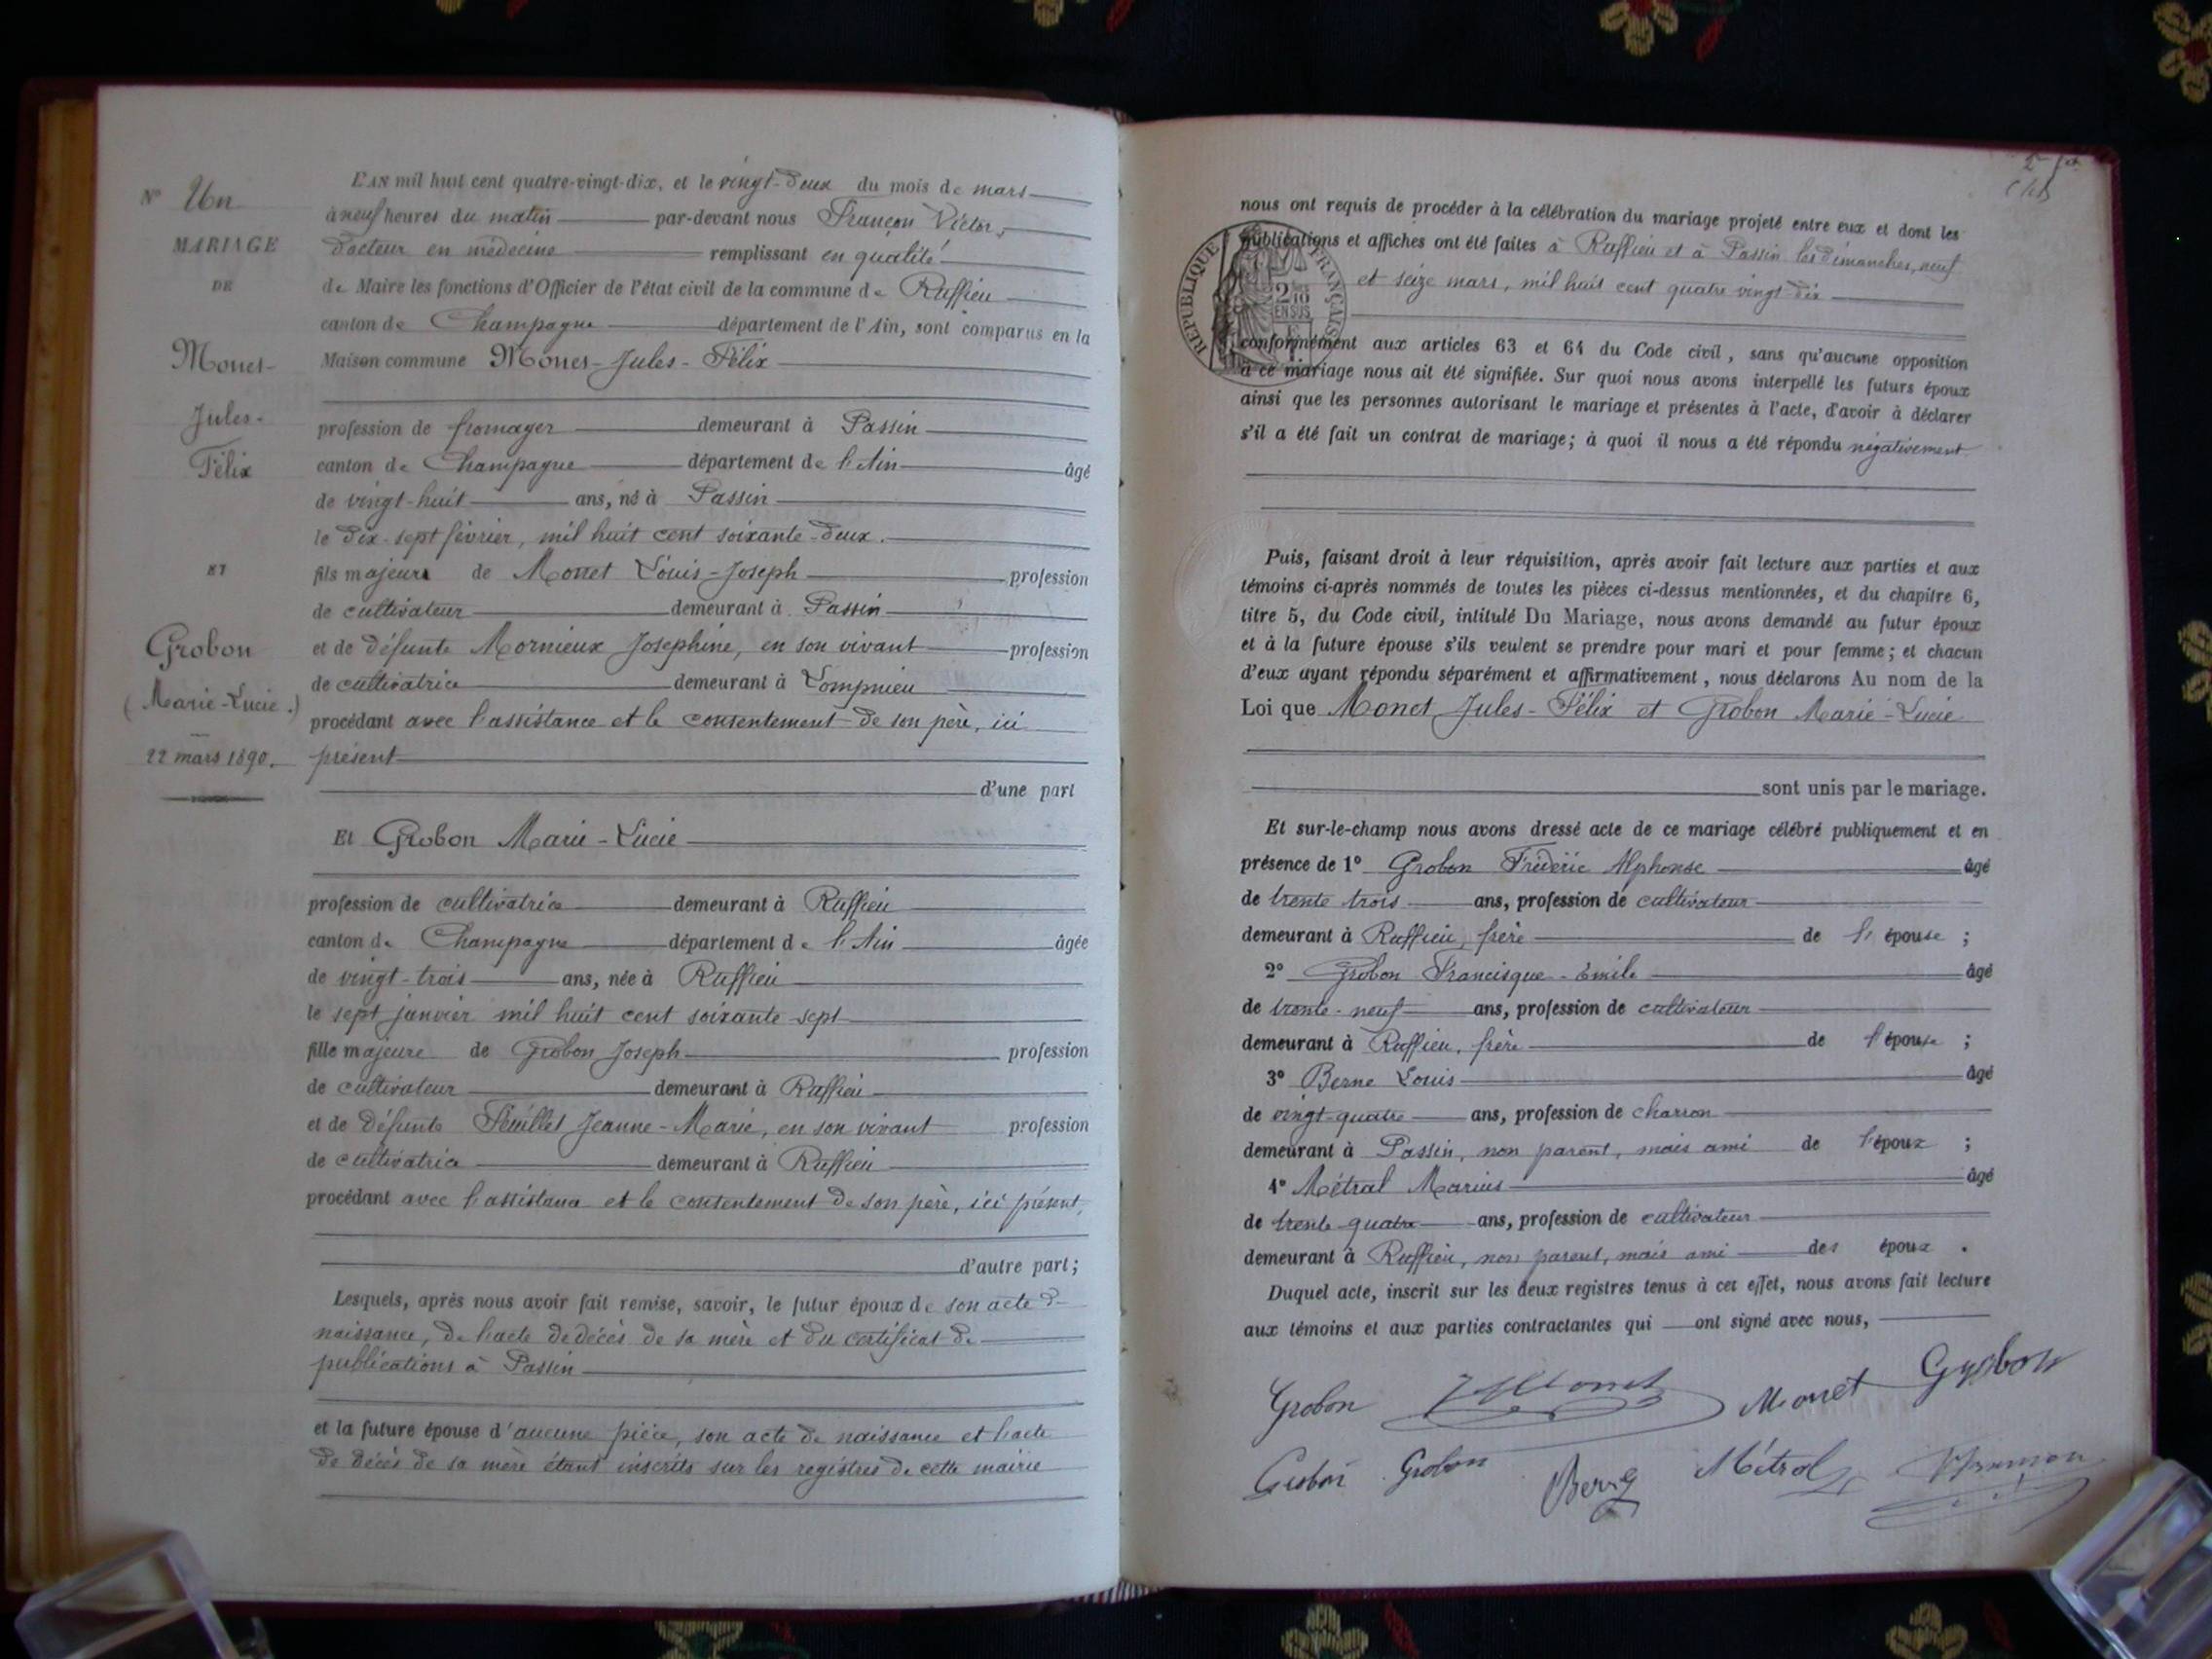 N° Un
MARIAGE
DE
Monet
Jules-
Félix
ET
Grobon
(Marie-Lucie.)
22 mars 1890.
L'AN mil huit cent quatre-vingt-dix, et le vingt-deux du mois de mars
à neuf heures du matin par-devant nous Françon Victor,
docteur en médecine remplissant en qualité
de Maire les fonctions d'Officier de l'état civil de la commune de Ruffieu
canton de Champagne département de l'Ain, sont comparus en la
Maison commune Monet-Jules-Félix
profession de fromager demeurant à Passin
canton de Champagne département de l'Ain âgé
de vingt-huit ans, né à Passin
le dix-sept février, mil huit cent soixante-deux.
fils majeur de Monet Louis-Joseph profession
de cultivateur demeurant à Passin
et de défunte Mornieux Josephine, en son vivant profession
de cultivatrice demeurant à Lompnieu
procédant avec l'assistance et le consentement de son père, ici
présent
d'une part
Et Grobon Marie-Lucie
profession de cultivatrice demeurant à Ruffieu
canton de Champagne département de l'Ain âgée
de vingt-trois ans, née à Ruffieu
le sept janvier mil huit cent soixante-sept
fille majeure de Grobon Joseph profession
de cultivateur demeurant à Ruffieu
et de défunte Feuillet Jeanne-Marie, en son vivant profession
de cultivatrice demeurant à Ruffieu
procédant avec l'assistance et le consentement de son père, ici présent,
d'autre part;
Lesquels, après nous avoir fait remise, savoir, le futur époux de son acte de
naissance, de l'acte de décès de sa mère et du certificat de
publications à Passin
et la future épouse d'aucune pièce, son acte de naissance et l'acte
de décès de sa mère étant inscrits sur les registres de cette mairie
nous ont requis de procéder à la célébration du mariage projeté entre eux et dont les
publications et affiches ont été faites à Ruffieu et à Passin les dimanches, neuf
et seize mars, mil huit cent quatre vingt-dix
RÉPUBLIQUE FRANÇAISE
2/10 EN SUS
conformément aux articles 63 et 64 du Code civil, sans qu'aucune opposition
à ce mariage nous ait été signifiée. Sur quoi nous avons interpellé les futurs époux
ainsi que les personnes autorisant le mariage et présentes à l'acte, d'avoir à déclarer
s'il a été fait un contrat de mariage; à quoi il nous a été répondu négativement
Puis, faisant droit à leur réquisition, après avoir fait lecture aux parties et aux
témoins ci-après nommés de toutes les pièces ci-dessus mentionnées, et du chapitre 6,
titre 5, du Code civil, intitulé Du Mariage, nous avons demandé au futur époux
et à la future épouse s'ils veulent se prendre pour mari et pour femme; et chacun
d'eux ayant répondu séparément et affirmativement, nous déclarons Au nom de la
Loi que Monet Jules-Félix et Grobon Marie-Lucie
sont unis par le mariage.
Et sur-le-champ nous avons dressé acte de ce mariage célébré publiquement et en
présence de 1° Grobon Frédéric Alphonse âgé
de trente trois ans, profession de cultivateur
demeurant à Ruffieu, frère de l'épouse;
2° Grobon Francisque-Emile âgé
de trente-neuf ans, profession de cultivateur
demeurant à Ruffieu, frère de l'épouse;
3° Berne Louis âgé
de vingt-quatre ans, profession de charron
demeurant à Passin, non parent, mais ami de l'époux;
4° Métral Marius âgé
de trente-quatre ans, profession de cultivateur
demeurant à Ruffieu, non parent, mais ami des époux.
Duquel acte, inscrit sur les deux registres tenus à cet effet, nous avons fait lecture
aux témoins et aux parties contractantes qui ont signé avec nous,
Grobon JMonet Monet Grobon
Grobon Grobon Berne Métral VFrançon